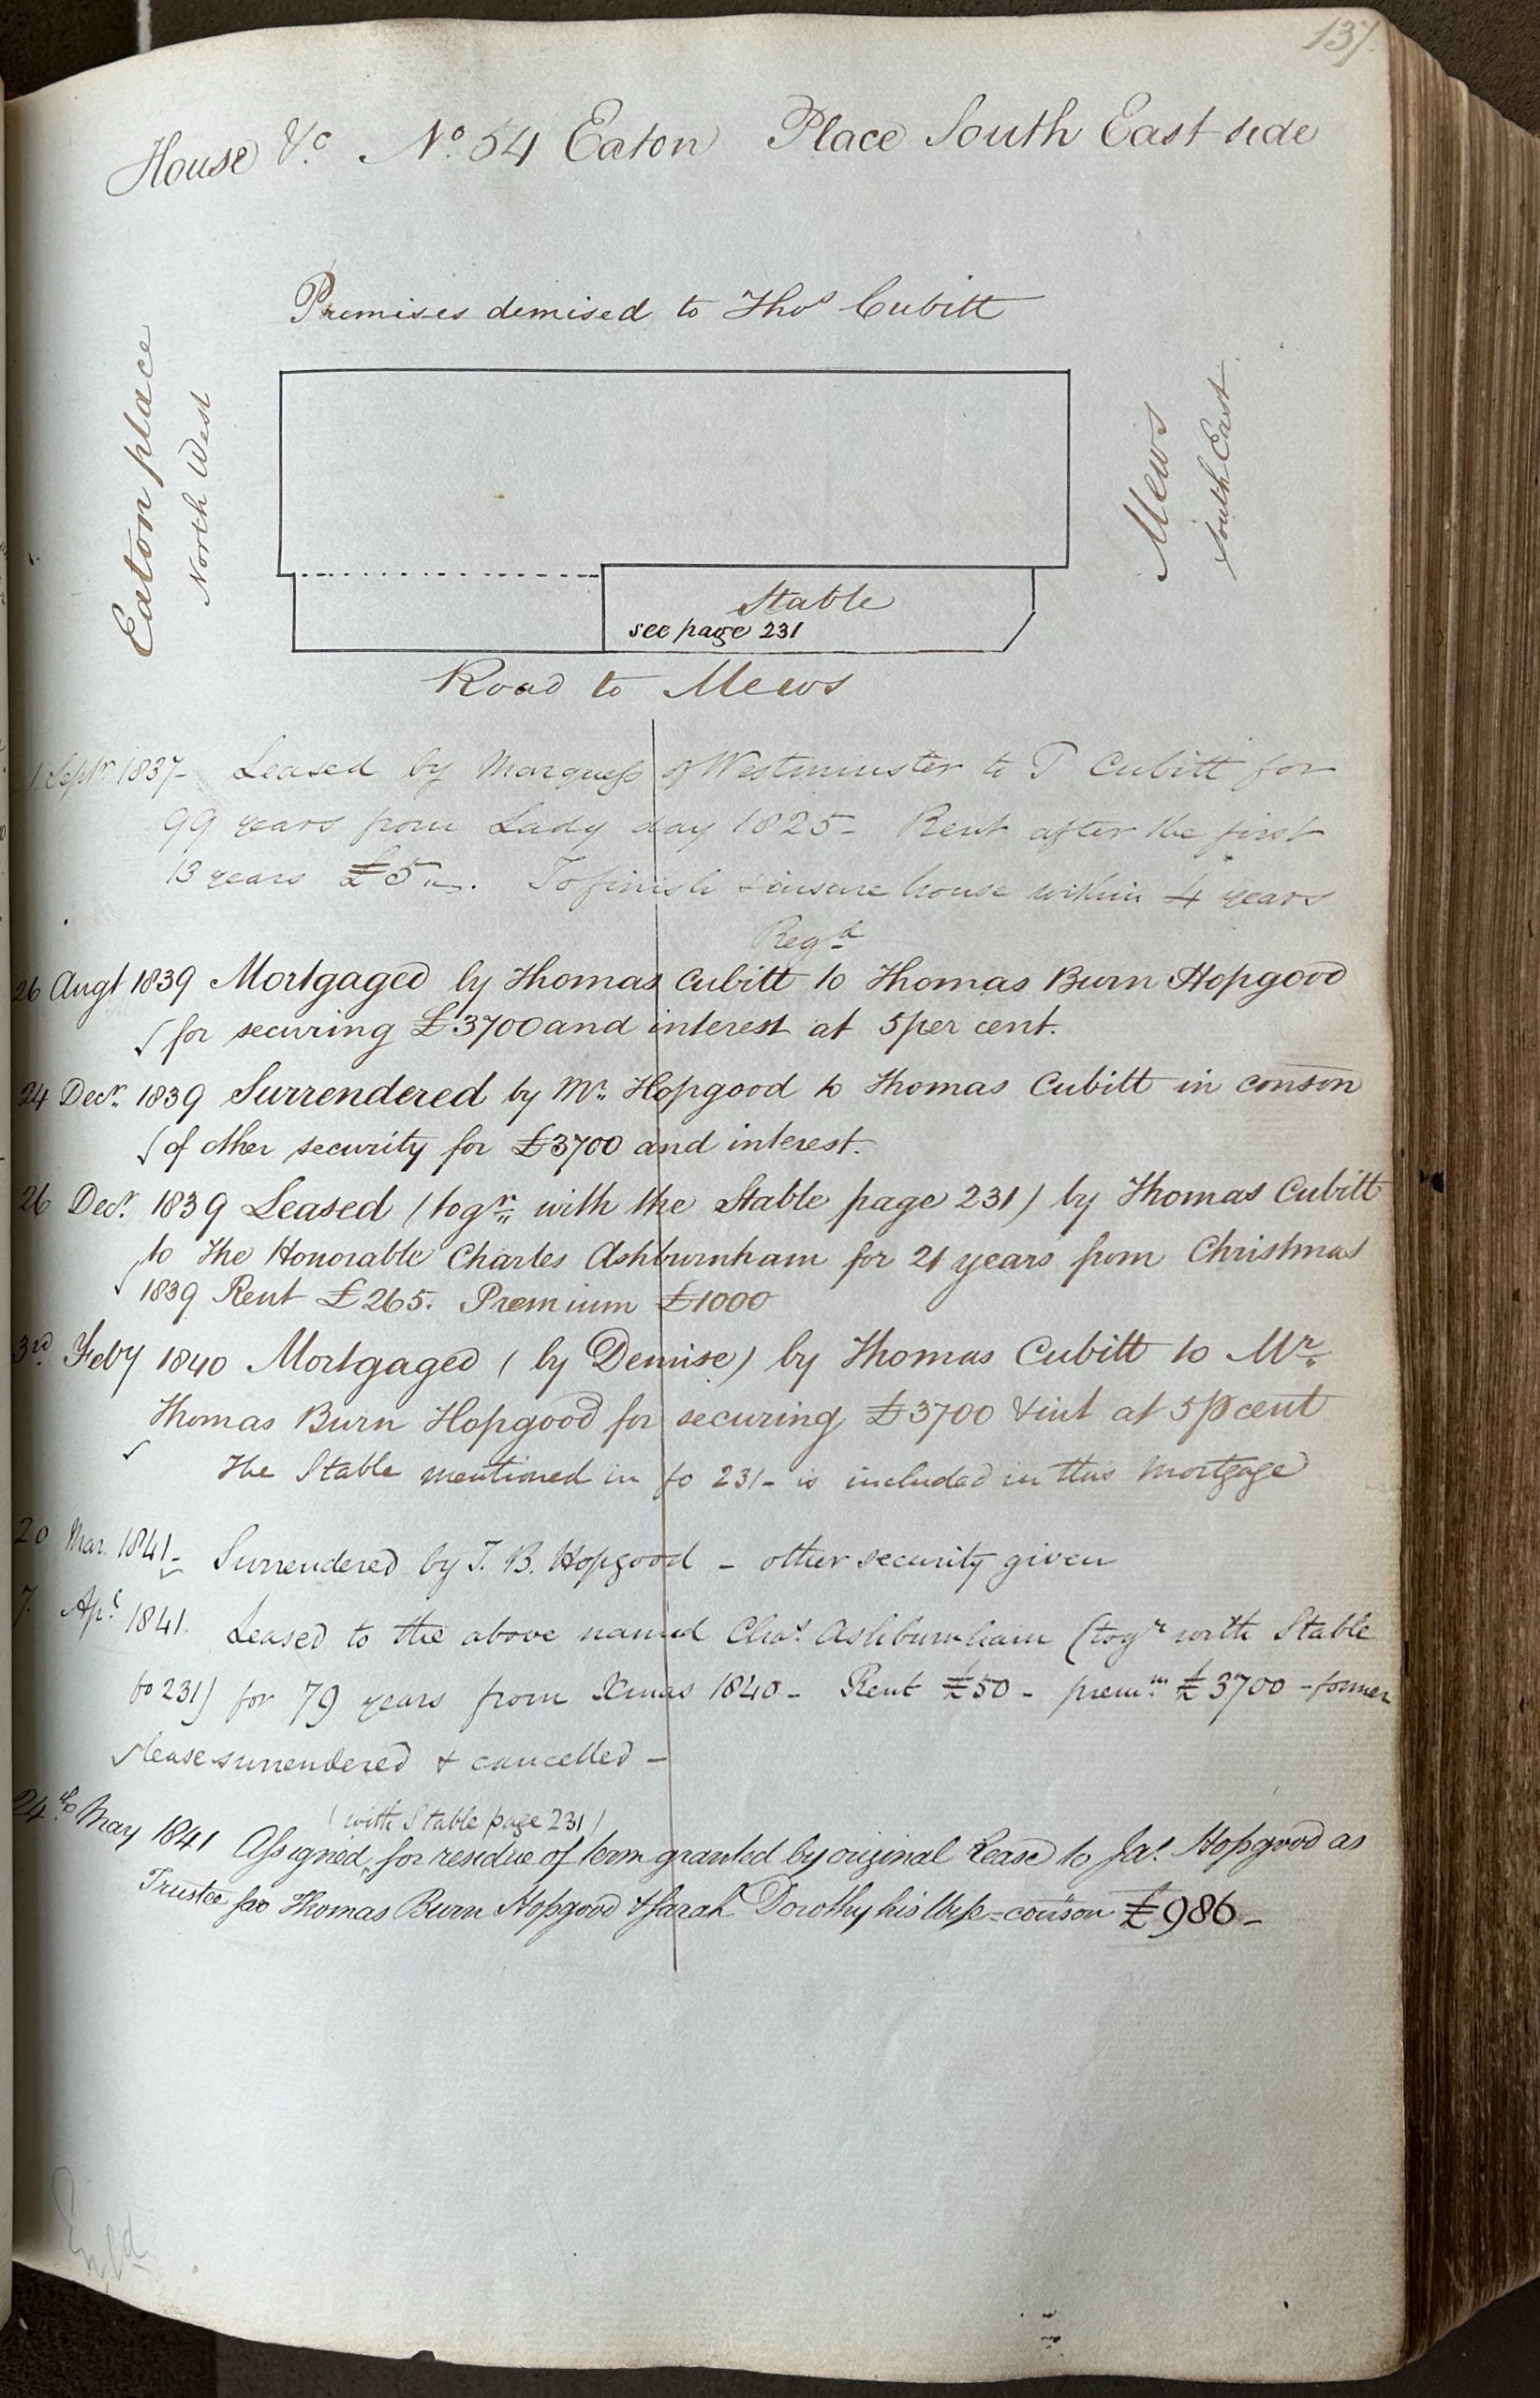 137.
House &c. No. 54 Eaton Place South East side
Premises demised to Thos Cubitt
Eaton place
North West
Mews
South East
Stable
see page 231
Road to Mews
1 Septr 1837- Leased by Marquess of Westminster to T Cubitt for
99 years from Lady day 1825- Rent after the first
13 years £5 . To finish & insure house within 4 years
Regd
26 Augt 1839 Mortgaged by Thomas Cubitt to Thomas Burn Hopgood
for securing £3700 and interest at 5 per cent.
24 Decr. 1839 Surrendered by Mr. Hopgood to Thomas Cubitt in conson
of other security for £3700 and interest.
26 Decr. 1839 Leased (togr. with the Stable page 231) by Thomas Cubitt
to the Honorable Charles Ashburnham for 21 years from Christmas
1839 Rent £265. Premium £1000
3rd. Feby 1840 Mortgaged (by Demise) by Thomas Cubitt to Mr.
Thomas Burn Hopgood for securing £3700 & int at 5 p cent
The Stable mentioned in fo 231- is included in this Mortgage
20 Mar. 1841- Surrendered by T. B. Hopgood - other security given
7. Apl 1841. Leased to the above named Chas. Ashburnham (togr with Stable
fo 231) for 79 years from Xmas 1840- Rent £50 - premm. £3700 - former
lease surrendered & cancelled -
(with Stable page 231)
24th May 1841 Assigned for residue of term granted by original Lease to Jas. Hopgood as
Trustee for Thomas Burn Hopgood & Sarah Dorothy his Wife - conson £986-